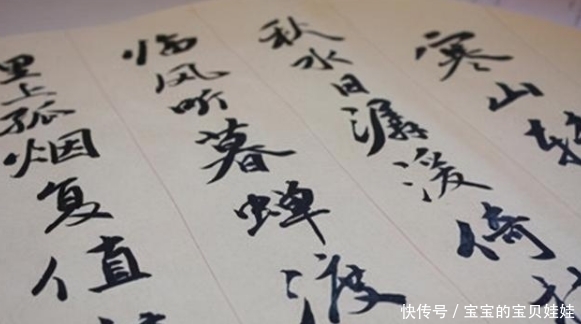 寒山转
秋水日潺湲倚
临风听暮蝉渡
里上孤烟复值
快传号／宝宝的宝贝娃娃